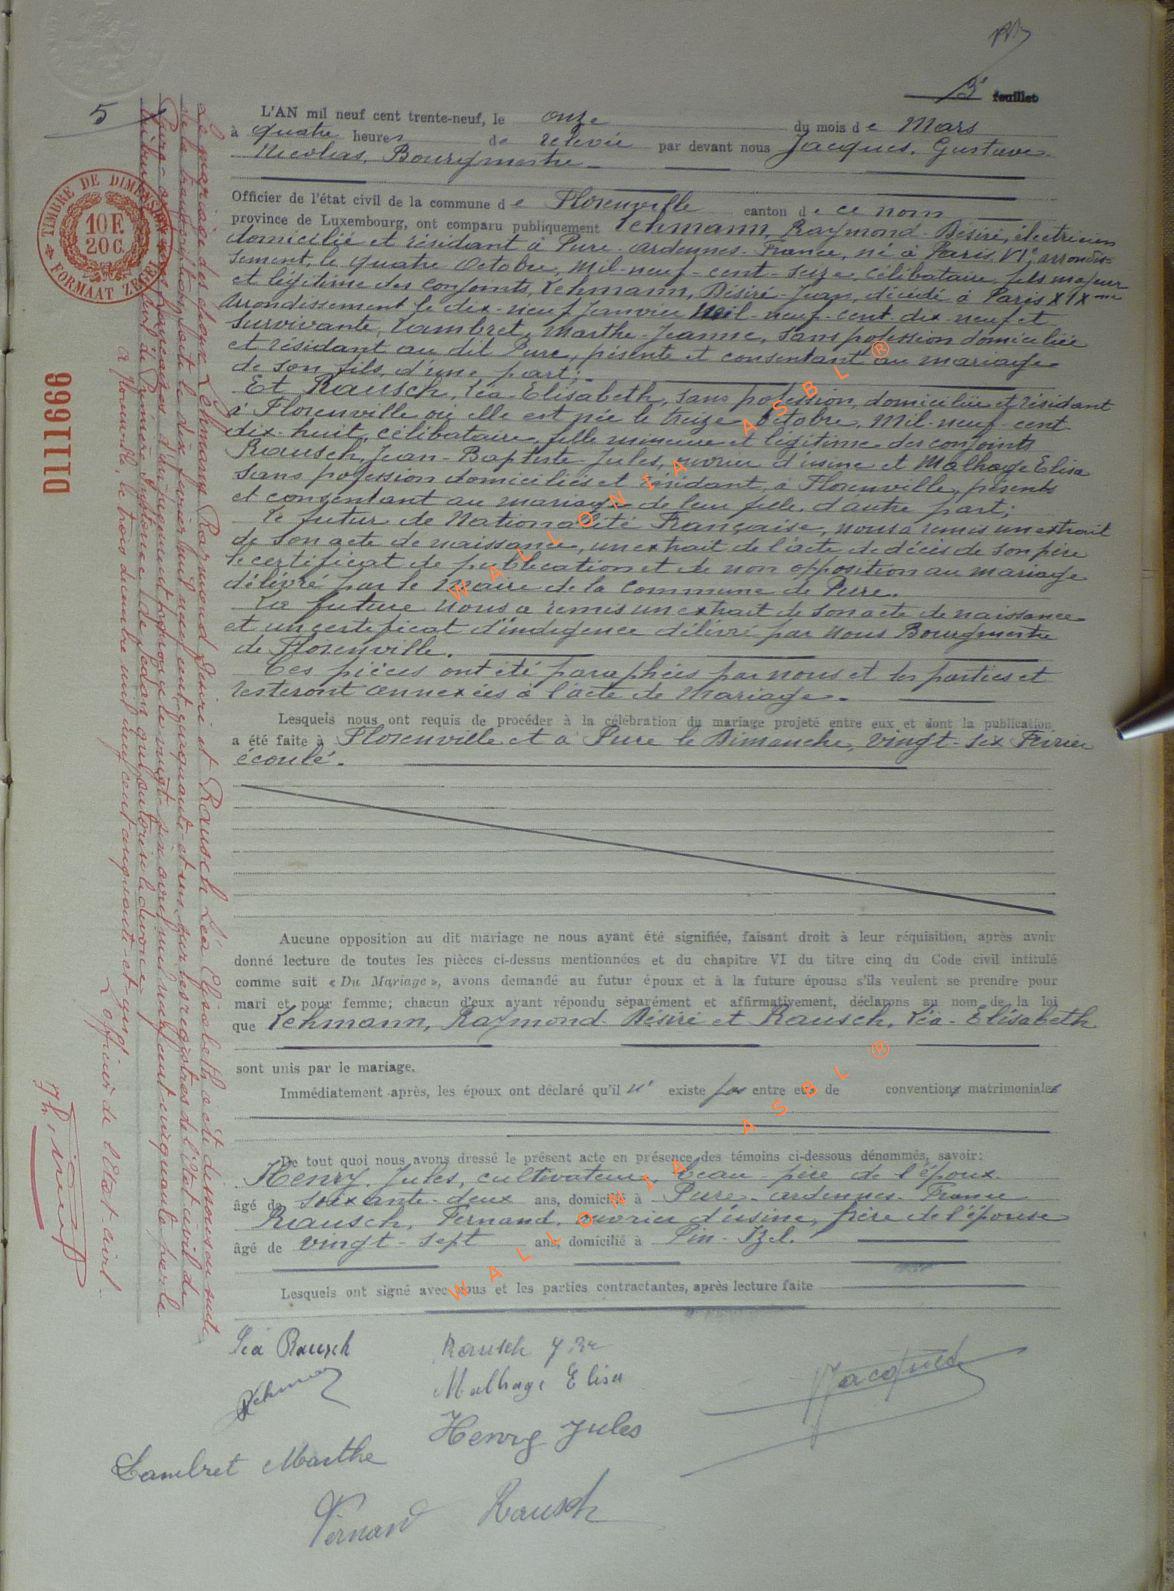 3e feuillet
5
L'AN mil neuf cent trente-neuf, le onze du mois de Mars
à quatre heures de relevée par devant nous Jacques, Gustave
Nicolas, Bourgmestre
Officier de l'état civil de la commune de Florenville canton de ce nom
province de Luxembourg, ont comparu publiquement Lehmann, Raymond-Désiré, électricien
domicilié et résidant à Pure-ardennes-France, né à Paris, VI, arrondis-
sement, le quatre Octobre, mil-neuf-cent-seize célibataire, fils majeur
et légitime des conjoints, Lehmann, Désiré-Jean, décédé à Paris XIXme
Arrondissement le dix-neuf Janvier mil-neuf-cent-dix-neuf et
survivante, Lambret, Marthe-Jeanne, sans profession domiciliée
et résidant au dit Pure, présente et consentant au mariage
de son fils, d'une part;
Et Rausch, Léa-Elisabeth, sans profession, domiciliée et résidant
à Florenville où elle est née le treize Octobre, Mil-neuf-cent
dix-huit, célibataire, fille mineure et légitime des conjoints
Rausch, Jean-Baptiste-Jules, ouvrier d'usine et Malhage Elisa
sans profession domiciliés et résidant, à Florenville, présents
et consentant au mariage de leur fille, d'autre part;
Le futur de Nationalité Française, nous a remis un extrait
de son acte de naissance, un extrait de l'acte de décès de son père
le certificat de publication et de non opposition au mariage
délivré par le Maire de la Commune de Pure.
La future nous a remis un extrait de son acte de naissance
et un certificat d'indigence délivré par nous Bourgmestre
de Florenville.
Ces pièces ont été paraphées par nous et les parties et
resteront annexées à l'acte de Mariage.
Lesquels nous ont requis de procéder à la célébration du mariage projeté entre eux et dont la publication
a été faite à Florenville et à Pure le Dimanche, vingt-six Février
écoulé.
Aucune opposition au dit mariage ne nous ayant été signifiée, faisant droit à leur réquisition, après avoir
donné lecture de toutes les pièces ci-dessus mentionnées et du chapitre VI du titre cinq du Code civil intitulé
comme suit « Du Mariage », avons demandé au futur époux et à la future épouse s'ils veulent se prendre pour
mari et pour femme; chacun d'eux ayant répondu séparément et affirmativement, déclarons au nom de la loi
que Lehmann, Raymond-Désiré et Rausch, Léa-Elisabeth
sont unis par le mariage.
Immédiatement après, les époux ont déclaré qu'il n' existe pas entre eux de conventions matrimoniales
De tout quoi nous avons dressé le présent acte en présence des témoins ci-dessous dénommés, savoir:
Henry, Jules, cultivateur, beau-père de l'époux
âgé de soixante-deux ans, domicilié à Pure-ardennes-France
Rausch, Fernand, ouvrier d'usine, frère de l'épouse
âgé de vingt-sept ans, domicilié à Pin-Izel.
Lesquels ont signé avec nous et les parties contractantes, après lecture faite
Léa Rausch
Rausch J
Lehmann
Malhage Elisa
Jacques
Henry Jules
Lambret Marthe
Fernand Rausch
TIMBRE DE DIMENSION
10 F.
20 C.
FORMAAT ZEGEL
D111666
Le mariage des époux Lehmann Raymond Désiré et Rausch Léa Elisabeth a été dissous en suite
de la transcription, faite le dix février mil neuf cent cinquante-et-un sur les registres de l'état civil de
Pure d'un jugement rendu le vingt-six avril mil neuf cent cinquante par le
tribunal de Première Instance de Sedan qui autorise le divorce.
à Florenville, le trois décembre mil neuf cent cinquante-et-un
L'officier de l'Etat-civil.
WALLONIA ASBL ®
WALLONIA ASBL ®